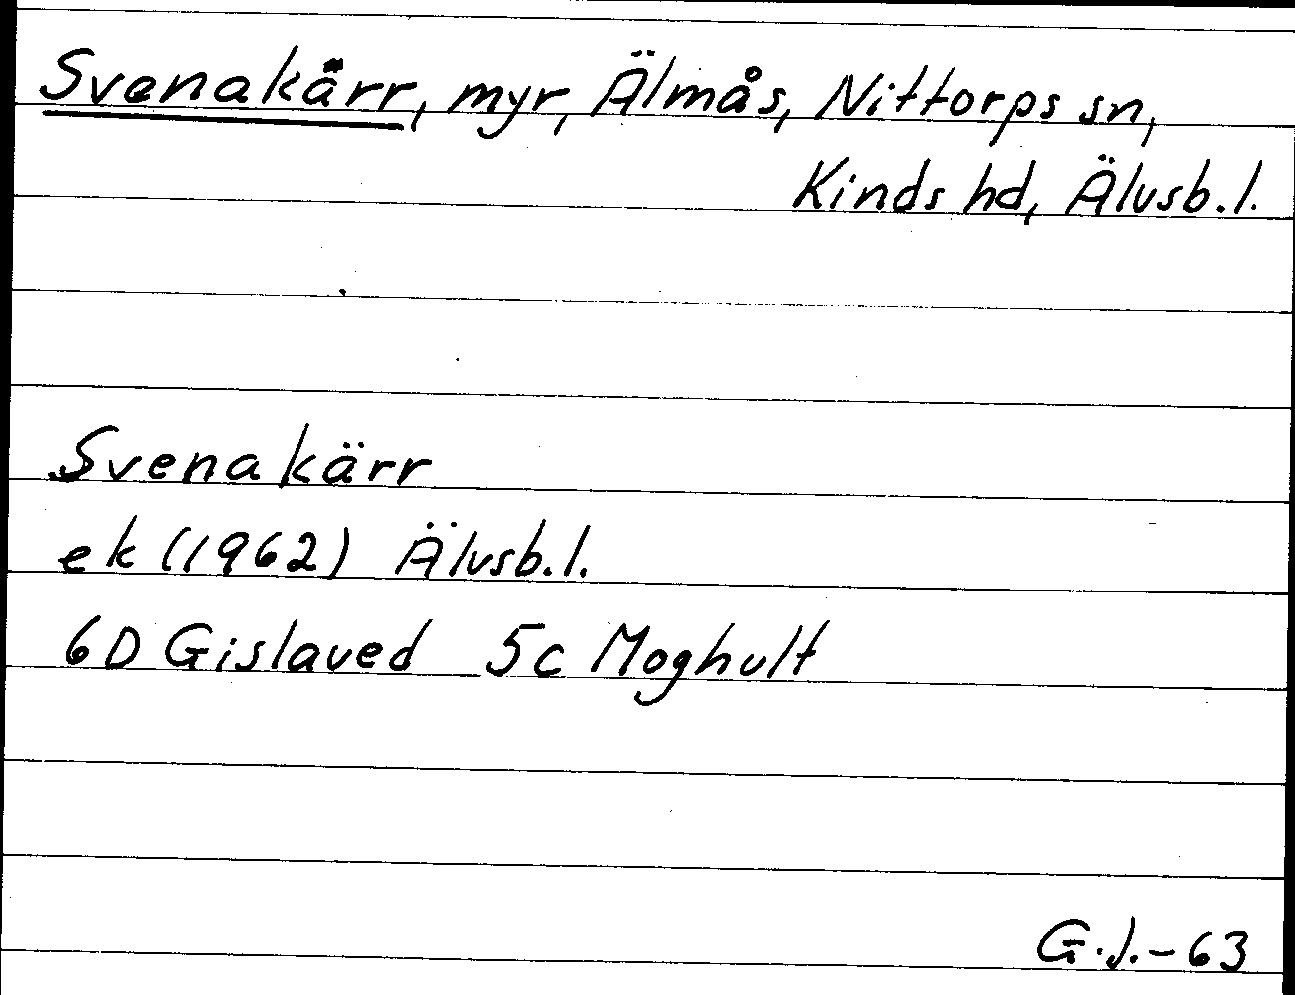 Svenakärr, myr, Älmås, Nittorps sn,
Kinds hd, Älvsb.l.
Svenakärr
ek (1962) Älvsb.l.
6D Gislaved 5c Moghult
G.J.-63